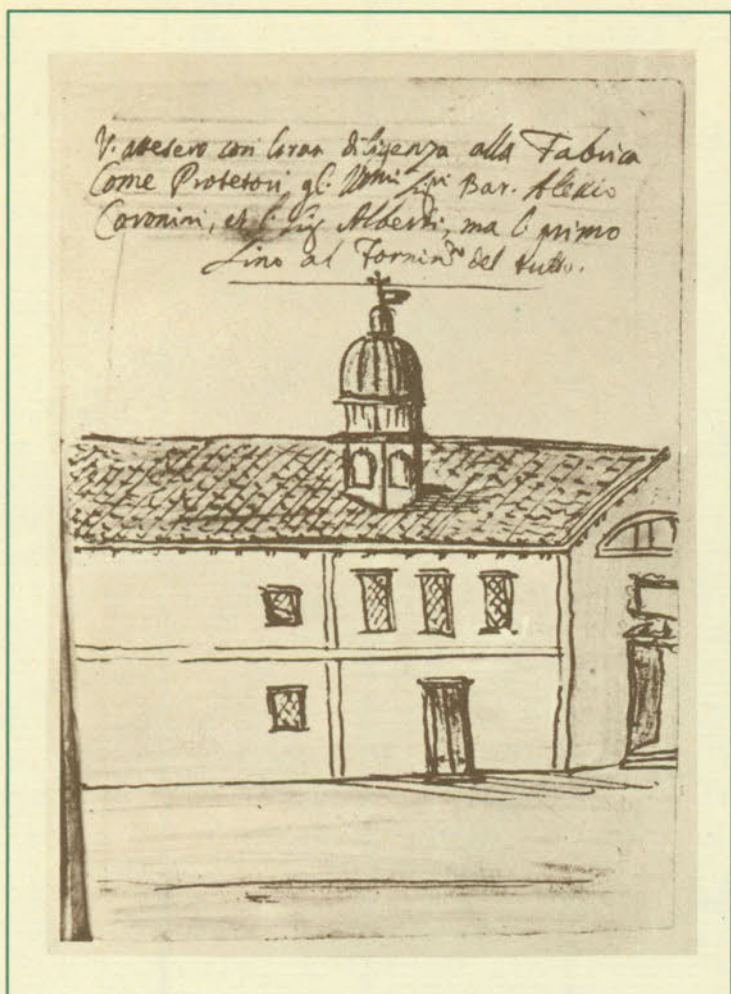 V. attesero con Gran diligenza alla Fabrica
Come Protetori, gl' Sigri Bar. Alexio
Coronini, et l' Sig Alberti, ma l' primo
Sino al Fornimto del tutto.